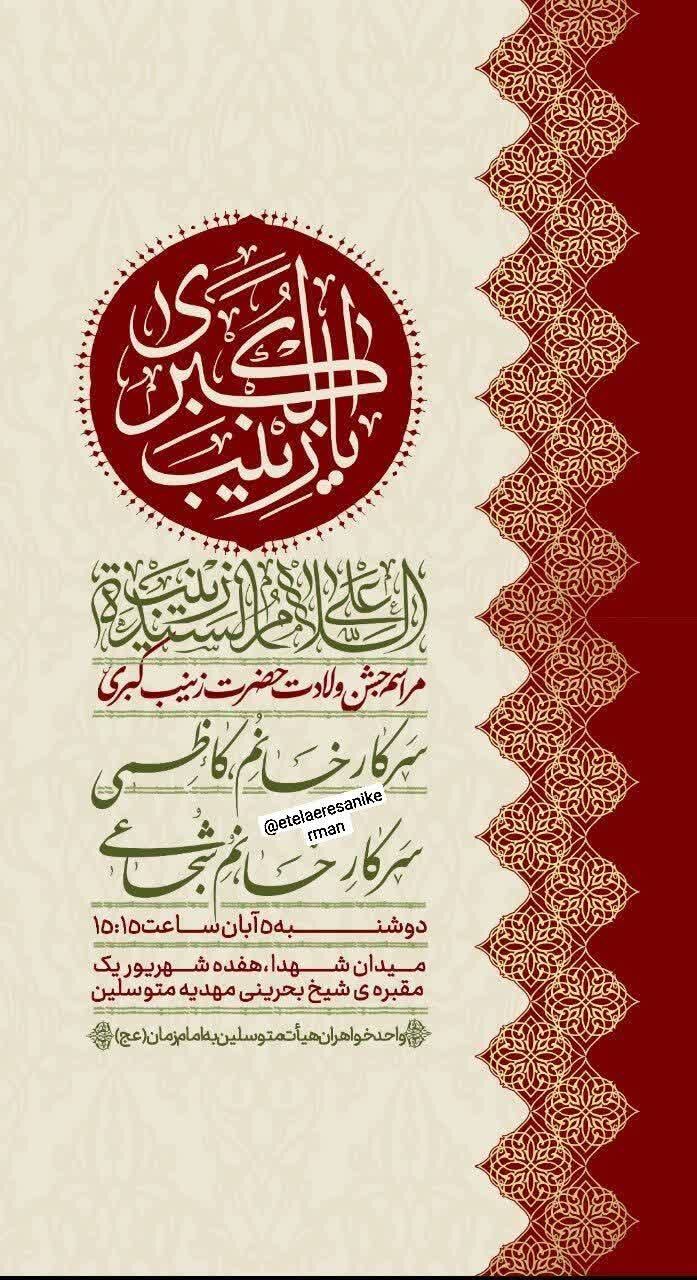 یا زینب الکبری
السلام علی السیدة زینب
مراسم جشن ولادت حضرت زینب کبری
سرکار خانم کاظمی
@etelaeresanike
rman
سرکار خانم شجاعی
دوشنبه ۵ آبان ساعت ۱۵:۱۵
میدان شهدا، هفده شهریور یک
مقبره ی شیخ بحرینی مهدیه متوسلین
واحد خواهران هیأت متوسلین به امام زمان (عج)